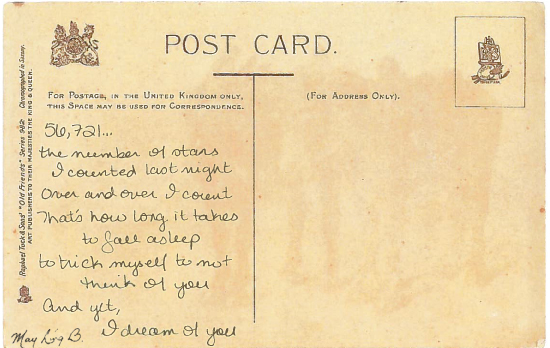 POST CARD.
FOR POSTAGE, IN THE UNITED KINGDOM ONLY,
THIS SPACE MAY BE USED FOR CORRESPONDENCE.
(FOR ADDRESS ONLY).
Raphael Tuck & Sons' "Old Friends" Series 982. Chromographed in Saxony.
ART PUBLISHERS TO THEIR MAJESTIES THE KING & QUEEN.
56,721...
the number of stars
I counted last night
Over and over I count
That's how long it takes
to fall asleep
to trick myself to not
think of you
And yet,
I dream of you
May B.